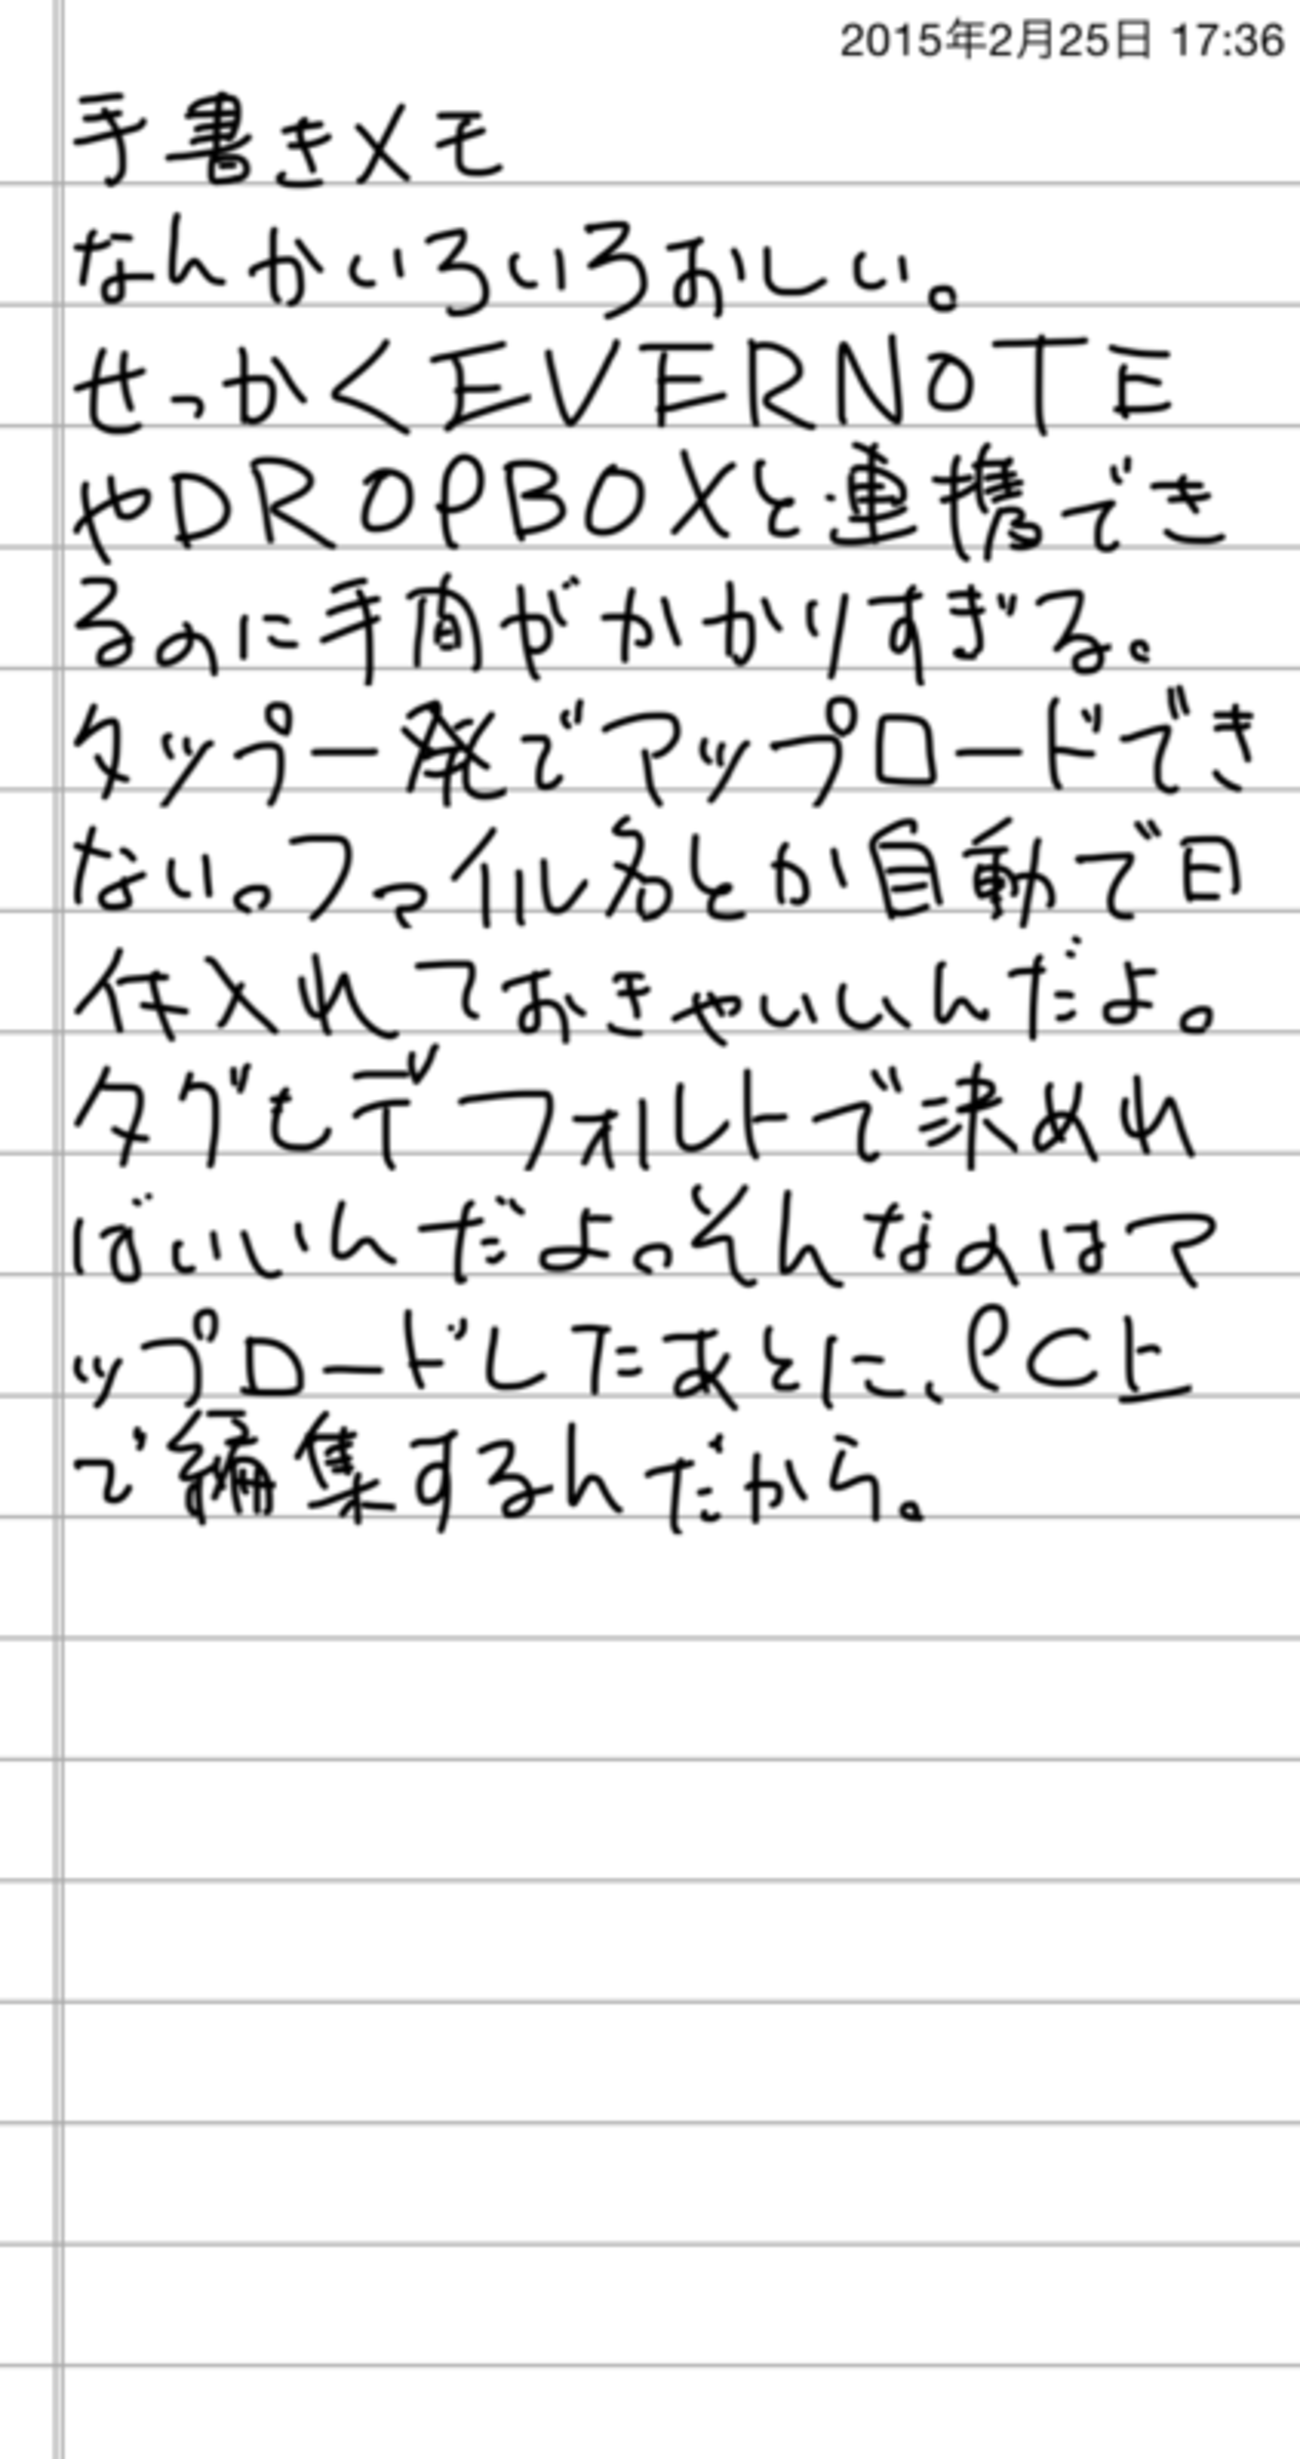 2015年2月25日 17:36
手書きメモ
なんかいろいろおしい。
せっかくEVERNOTE
やDROPBOXと連携でき
るのに手間がかかりすぎる。
タップ一発でアップロードでき
ない。ファイル名とか自動で日
付入れておきゃいいんだよ。
タグもデフォルトで決めれ
ばいいんだよ。そんなのはア
ップロードしたあとに、PC上
で編集するんだから。